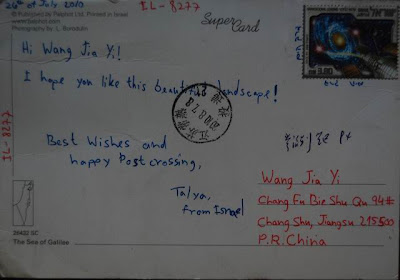 26th of July 2010
© Published by Palphot Ltd. Printed in Israel
www.palphot.com
Photography by L. Borodulin
IL-8277
Super
Card
Hi Wang Jia Yi!
I hope you like this beautiful landscape!
IL-8277
Best Wishes and
happy Postcrossing,
Talya,
from Israel
Wang Jia Yi
Chang Fu Bie Shu Qu 94#
Chang Shu, Jiangsu 215500
P.R. China
26432 SC
The Sea of Galilee